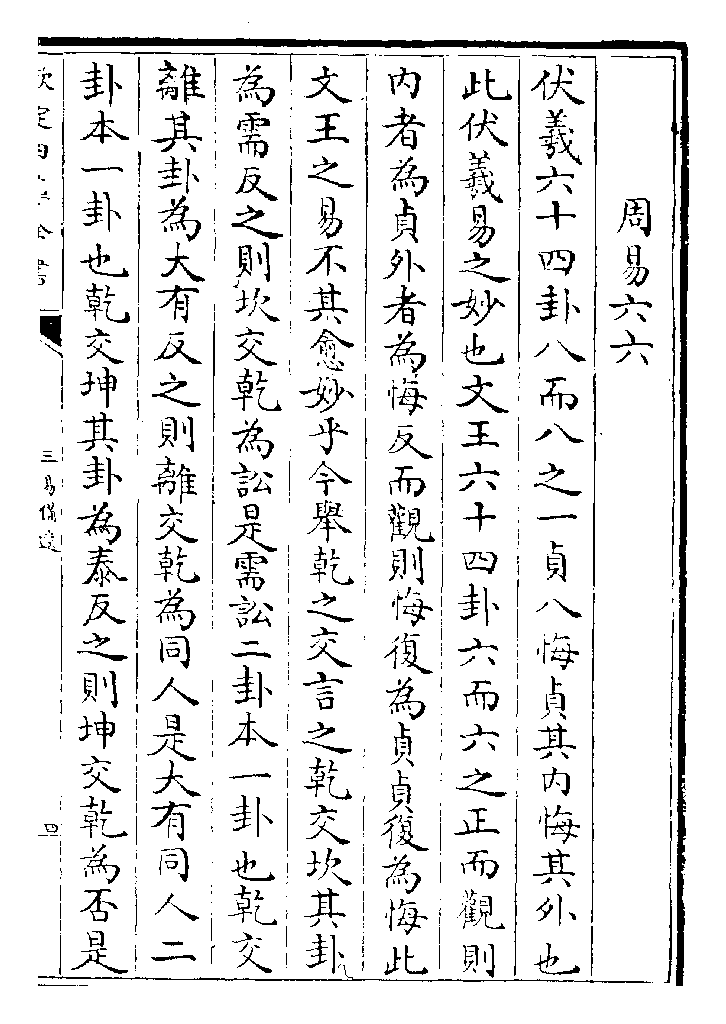 周易六六
伏羲六十四卦八而八之一貞八悔貞其内悔其外也
此伏羲易之妙也文王六十四卦六而六之正而觀則
内者為貞外者為悔反而觀則悔復為貞貞復為悔此
文王之易不其愈妙乎今舉乾之交言之乾交坎其卦
為需反之則坎交乾為訟是需訟二卦本一卦也乾交
離其卦為大有反之則離交乾為同人是大有同人二
卦本一卦也乾交坤其卦為泰反之則坤交乾為否是
欽定四庫全書
三易備遺
四